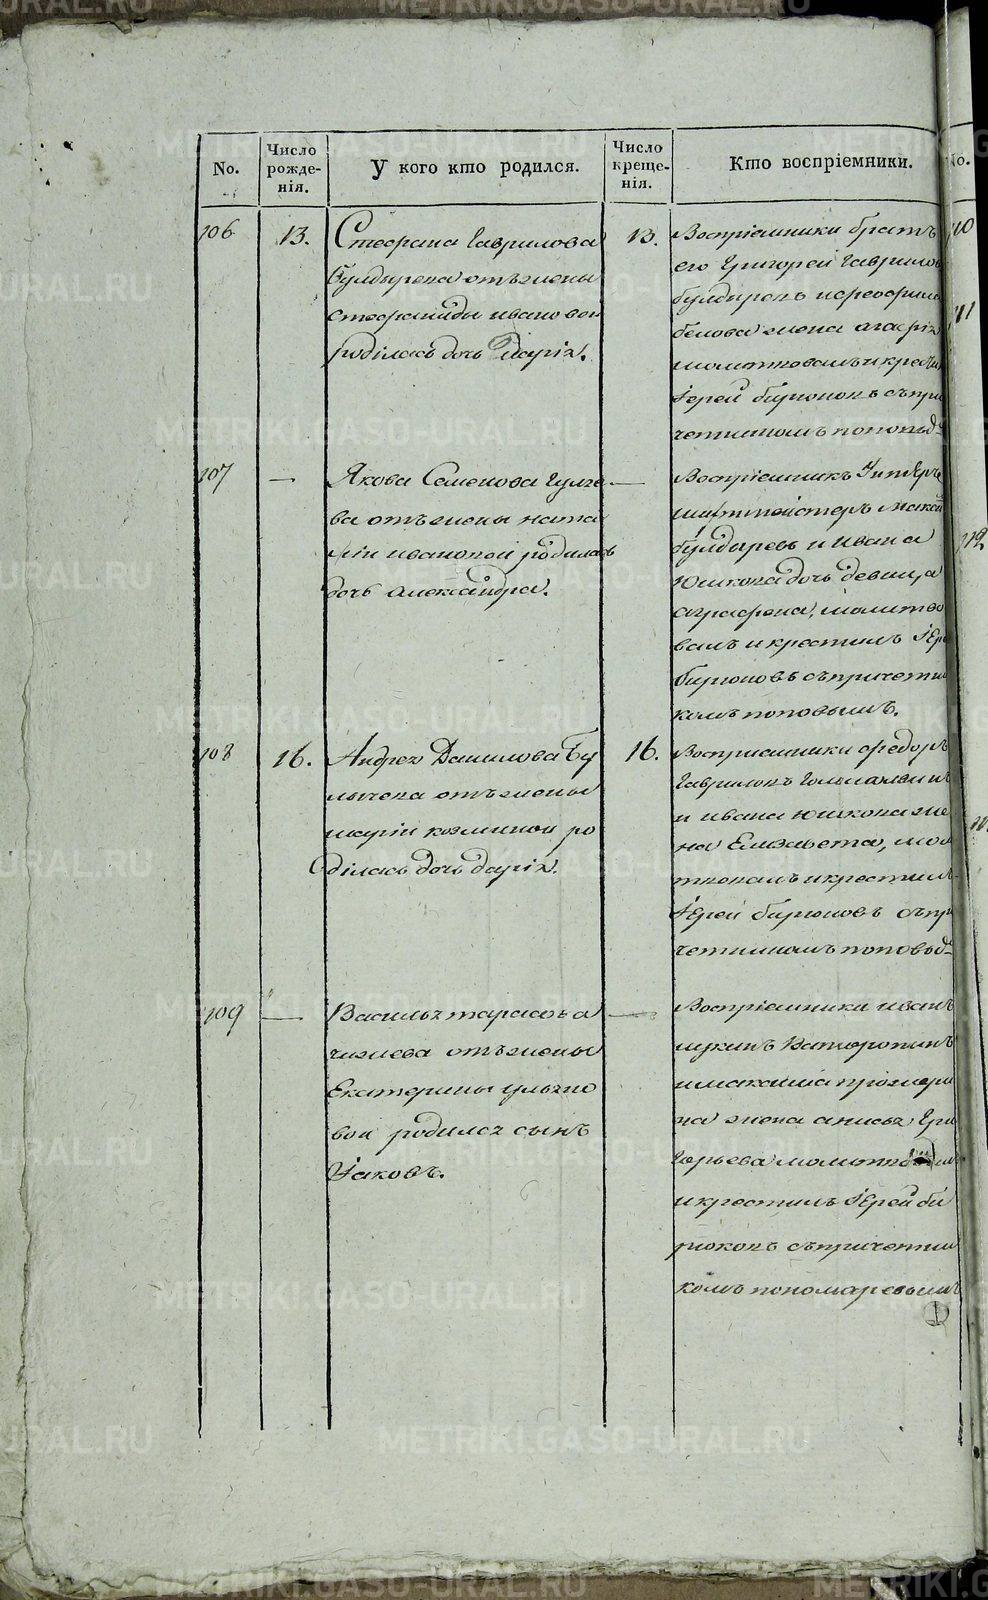 No.
Число рожде-нія.
У кого кто родился.
Число креще-нія.
Кто воспріемники.
No.
106
13.
Стефана Гаврилова
булдырева отъ жены
стефаниды ивановой
родilась дочь Дарія.
13.
Воспріемники братъ
его Григорей Гаврилов
булдыревъ и
белова жена
молитвовалъ и крести
Іерей бирюковъ съ при
четникомъ поповы
107
—
Якова Семенова
ва отъ жены ната
ліи ивановой родилась
дочь александра.
—
Воспріемникъ Унтеръ
шихтмейстеръ
булдыревъ и Ивана
Юшкова дочь девица
аграфена, молитво
валъ и крестилъ Іере
бирюковъ съ причетни
комъ поповымъ.
108
16.
Андрея Данилова Бу
лычева отъ жены
маріи козминой ро
дилась дочь дарія.
16.
Воспріемники федоръ
Гавриловъ
и ивана юшкова же
на Елизавета, мол
твовалъ и крестилъ
Іерей бирюковъ съ при
четникомъ поповы
109
—
Василья тарасова
отъ жены
Екатерины улья­но
вой родился сынъ
Іаковъ.
—
Воспріемники иванъ
лукинъ
и максима
ва жена анисья Гри
горьева
и крестилъ Іерей би
рюковъ съ причетни
комъ пономаревымъ
110
111
112
METRIKI.GASO-URAL.RU